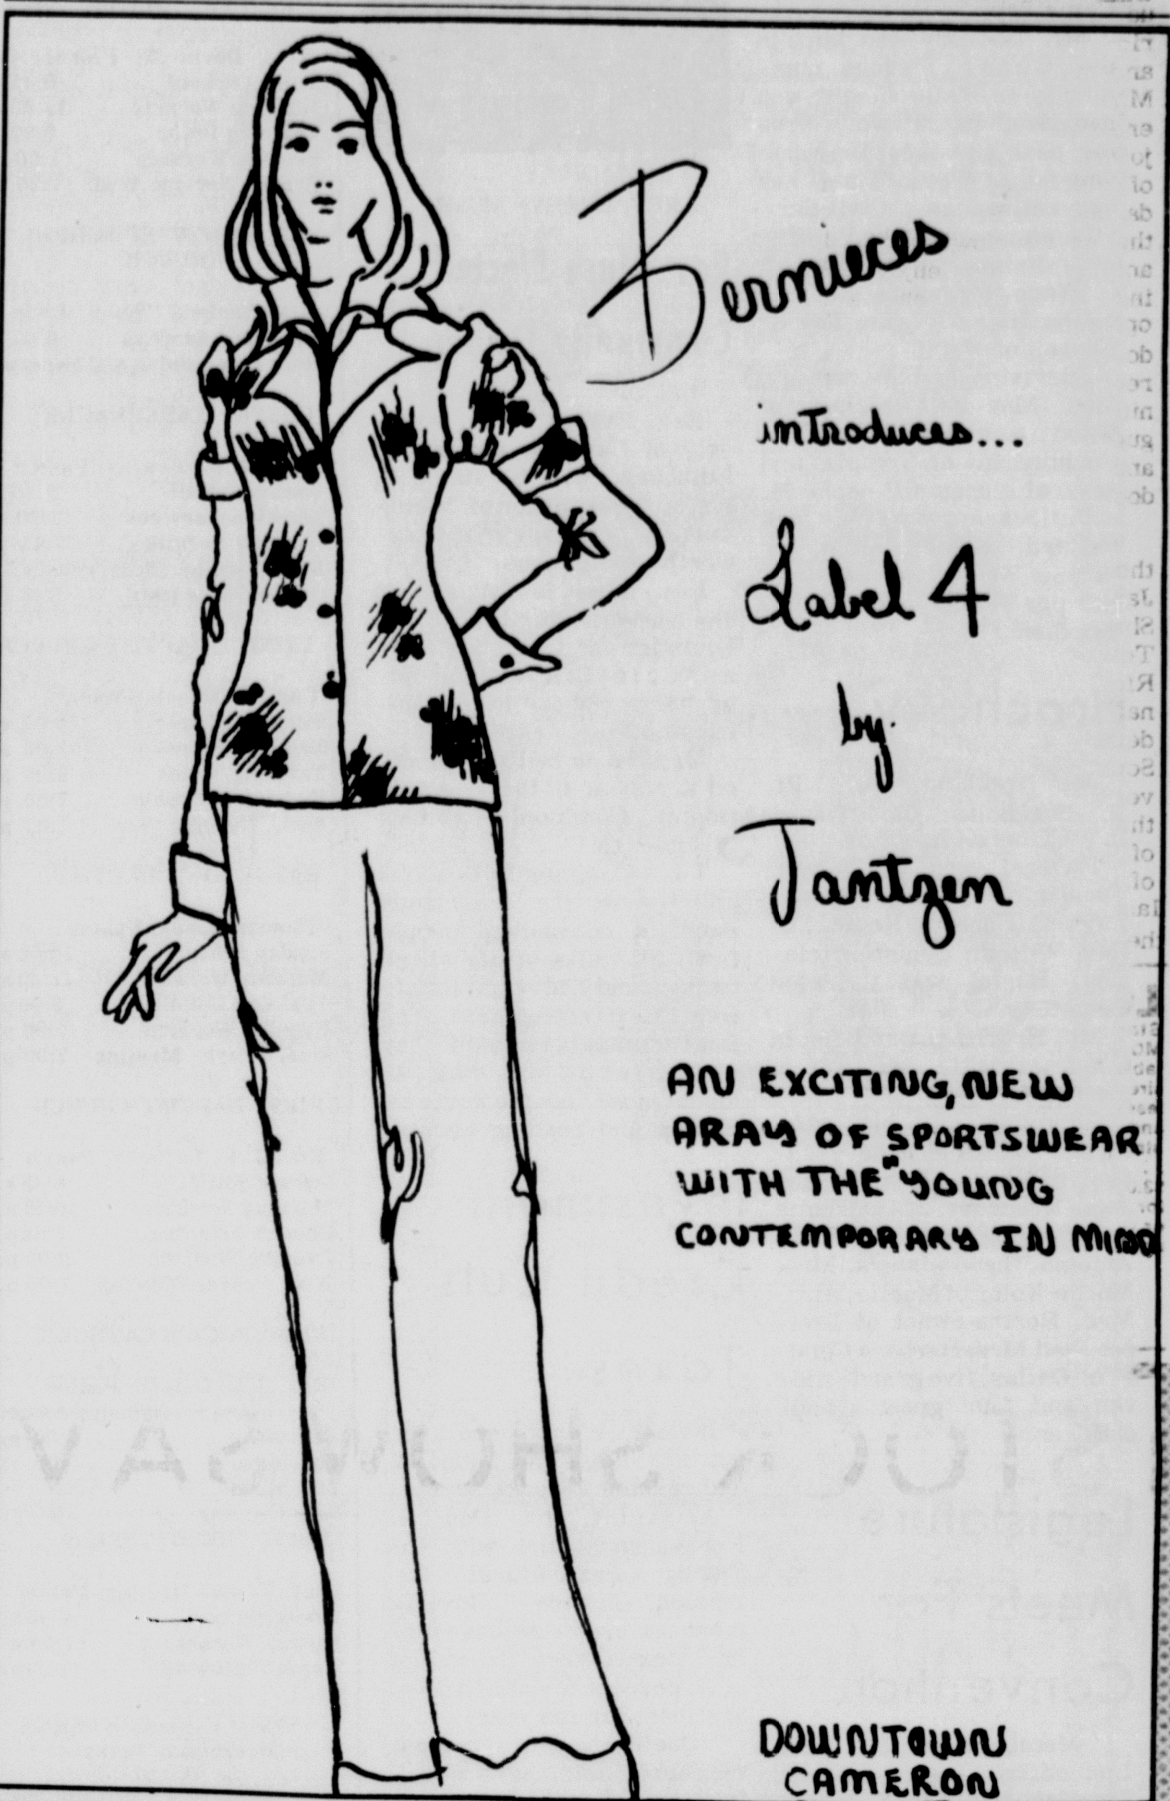 Bernieces
introduces...
Label 4
by
Jantzen
AN EXCITING, NEW
ARAY OF SPORTSWEAR
WITH THE "YOUNG
CONTEMPORARY IN MIND
DOWNTOWN
CAMERON